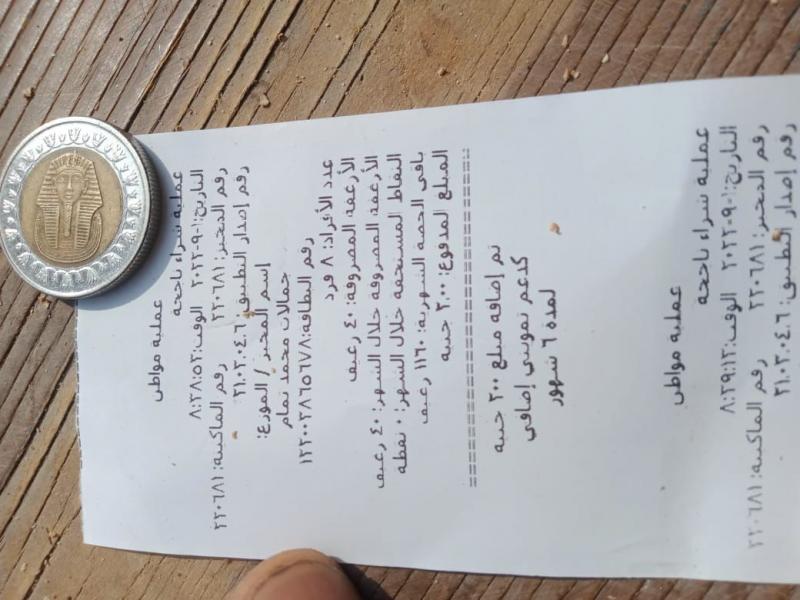 عملية مواطن
عملية شراء ناجحة
التاريخ:١-٩-٢٠٢٢ الوقت:٨:٢٨:٥٢
رقم المخبز:٢٢٠٦٨١ رقم الماكينة:٢٢٠٦٨١
رقم إصدار التطبيق:٢١.٠٢.٠٤.٠٦
إسم المخبز / الموزع:
حمالات محمد تمام
رقم البطاقة:١٢٢٠٠٢٨٦٥٦٧٨
عدد الأفراد:٨ فرد
الأرغفة المصروفة:٤٠ رغيف
الأرغفة المصروفة خلال الشهر:٤٠ رغيف
النقاط المستحقة خلال الشهر:٠ نقطة
باقى الحصة الشهرية:١١٦٠ رغيف
المبلغ المدفوع:٢.٠٠ جنيه
================================
تم إضافة مبلغ ٢٠٠ جنيه
كدعم تمويني إضافي
لمدة ٦ شهور
عملية مواطن
عملية شراء ناجحة
التاريخ:١-٩-٢٠٢٢ الوقت:٨:٢٩:١٢
رقم المخبز:٢٢٠٦٨١ رقم الماكينة:٢٢٠٦٨١
رقم إصدار التطبيق:٢١.٠٢.٠٤.٠٦